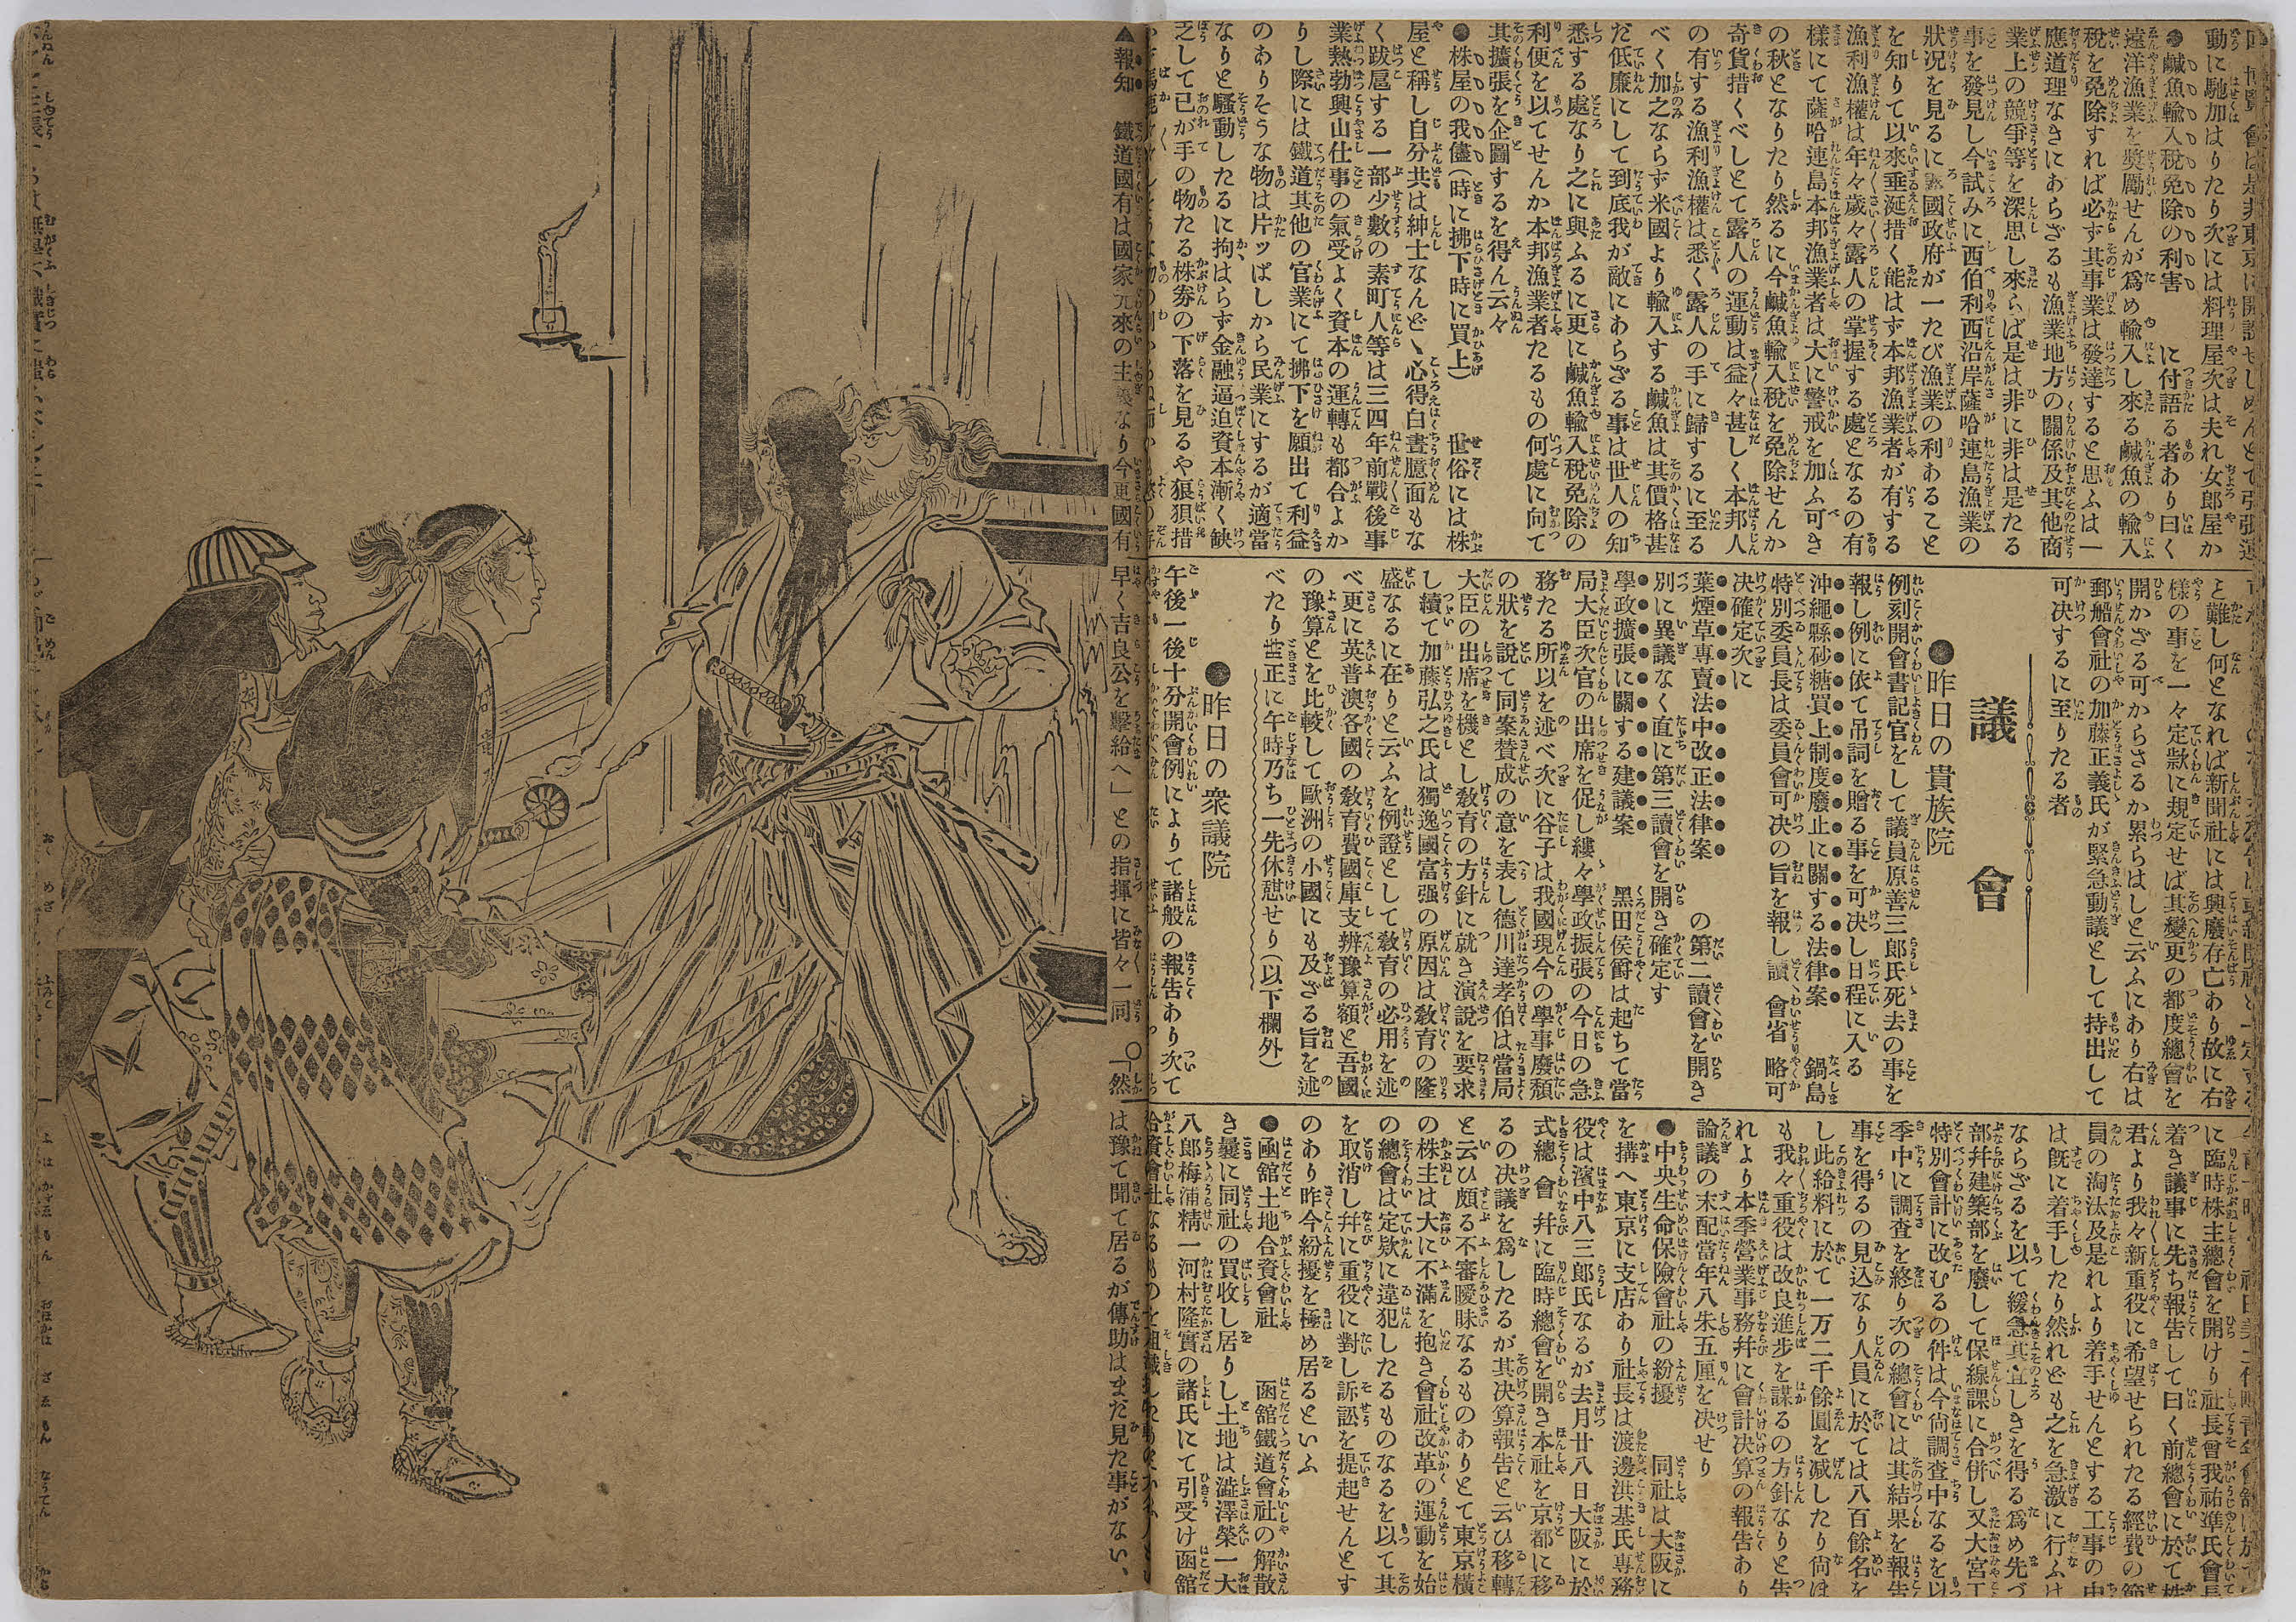 動に馳加はりたり次には料理屋次は夫れ女郎屋か
●鹹魚輸入税免除の利害 に付語る者あり曰く
遠洋漁業を奬勵せんが爲め輸入し來る鹹魚の輸入
税を免除すれば必ず其事業は發達すると思ふは一
應道理なきにあらざるも漁業地方の關係及其他商
業上の競爭等を深思し來らば是は非に非は是たる
事を發見し今試みに西伯利西沿岸薩哈連島漁業の
狀况を見るに露國政府が一たび漁業の利あること
を知りて以來垂涎措く能はず本邦漁業者が有する
漁利漁權は年々歲々露人の掌握する處となるの有
樣にて薩哈連島本邦漁業者は大に警戒を加ふ可き
の秋となりたり然るに今鹹魚輸入税を免除せんか
奇貨措くべしとて露人の運動は益々甚しく本邦人
の有する漁利漁權は悉く露人の手に歸するに至る
べく加之ならず米國より輸入する鹹魚は其價格甚
だ低廉にして到底我が敵にあらざる事は世人の知
悉する處なり之に與ふるに更に鹹魚輸入税免除の
利便を以てせんか本邦漁業者たるもの何處に向て
其擴張を企圖するを得ん云々
●株屋の我儘(時に拂下時に買上) 世俗には株
屋と稱し自分共は紳士なんどゝ心得白晝臆面もな
く跋扈する一部少數の素町人等は三四年前戰後事
業熱勃興山仕事の氣受よく資本の運轉も都合よか
りし際には鐵道其他の官業にて拂下を願出て利益
のありそうな物は片ッぱしから民業にするが適當
なりと騷動したるに拘はらず金融逼迫資本漸く缺
乏して己が手の物たる株劵の下落を見るや狼狽措
と難し何となれば新聞社には興廢存亡あり故に右
樣の事を一々定欵に規定せば其變更の都度總會を
開かざる可からさるか累らはしと云ふにあり右は
郵船會社の加藤正義氏が緊急動議として持出して
可決するに至りたる者
議會
●昨日の貴族院
例刻開會書記官をして議員原善三郎氏死去の事を
報し例に依て吊詞を贈る事を可决し日程に入る
沖繩縣砂糖買上制度廢止に關する法律案 鍋島
特別委員長は委員會可决の旨を報し讀會省略可
决確定次に
葉煙草專賣法中改正法律案 の第二讀會を開き
別に異議なく直に第三讀會を開き確定す
學政擴張に關する建議案 黑田侯爵は起ちて當
局大臣次官の出席を促し縷々學政振張の今日の急
務たる所以を述べ次に谷子は我國現今の學事廢頽
の狀を說て同案賛成の意を表し德川達孝伯は當局
大臣の出席を機とし敎育の方針に就き演說を要求
し續て加藤弘之氏は獨逸國富强の原因は敎育の隆
盛なるに在りと云ふを例證として敎育の必用を述
べ更に英普澳各國の敎育費國庫支辨豫算額と吾國
の豫算とを比較して歐洲の小國にも及ざる旨を述
べたり時正に午時乃ち一先休憇せり(以下欄外)
●昨日の衆議院
午後一後十分開會例によりて諸般の報告あり次て
に臨時株主總會を開けり社長曾我祐準氏會長
着き議事に先ち報告して曰く前總會に於て株
君より我々新重役に希望せられたる經費の節
員の淘汰及是れより着手せんとする工事の中
は旣に着手したり然れども之を急激に行ふは
ならざるを以て緩急其宜しきを得る爲め先づ
部幷建築部を廢して保線課に合併し又大宮工
特別會計に改むるの件は今尙調査中なるを以
季中に調査を終り次の總會には其結果を報告
事を得るの見込なり人員に於ては八百餘名を
し此給料に於て一万二千餘圓を减したり尙ほ
も我々重役は改良進步を謀るの方針なりと告
れより本季營業事務幷に會計决算の報告あり
論議の末配當年八朱五厘を决せり
●中央生命保險會社の紛擾 同社は大阪に
を搆へ東京に支店あり社長は渡邊洪基氏專務
役は濱中八三郎氏なるが去月廿八日大阪に於
式總會幷に臨時總會を開き本社を京都に移
るの决議を爲したるが其决算報告と云ひ移轉
と云ひ頗る不審曖昧なるものありとて東京橫
の株主は大に不滿を抱き會社改革の運動を始
の總會は定欵に違犯したるものなるを以て其
を取消し幷に重役に對し訴訟を提起せんとす
のあり昨今紛擾を極め居るといふ
●凾舘土地合資會社 凾舘鐵道會社の解散
き曩に同社の買收し居りし土地は澁澤榮一大
八郎梅浦精一河村隆實の諸氏にて引受け凾舘
▲報知 鐵道國有は國家元來の主義なり今更國有
早く吉良公を擊給へ」との指揮に皆々一同
は豫て聞て居るが傳助はまだ見た事がない、